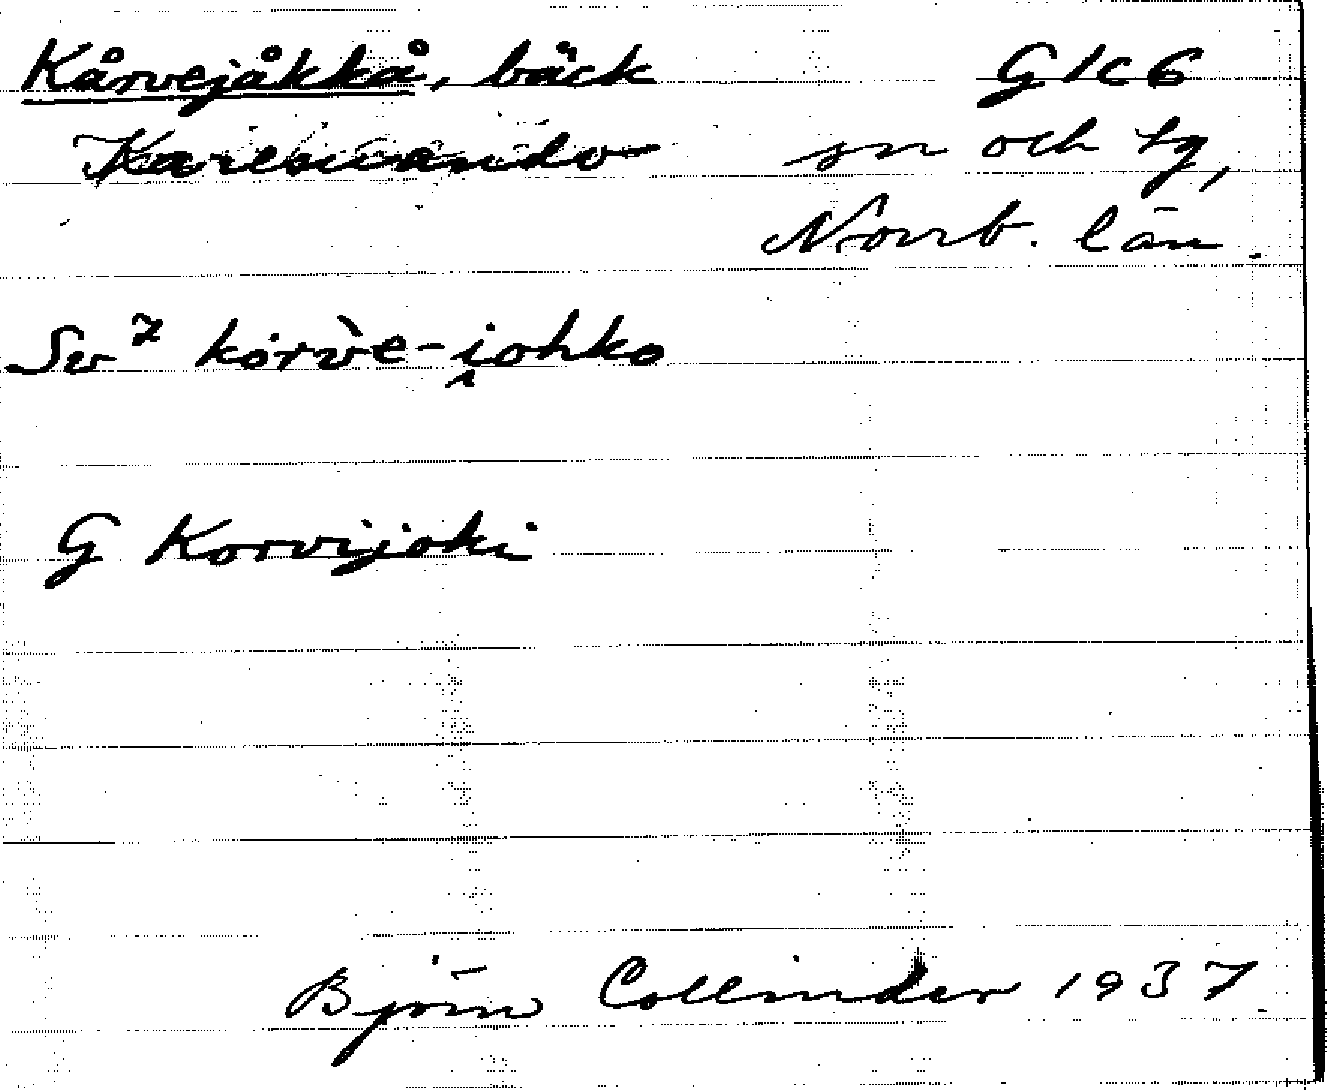 Kårvejåkkå, bäck G1c6
Karesuando sn och tg,
Norrb. län.
kor̀vè-i̭ohko
G Korvijoki
Björn Collinder 1937